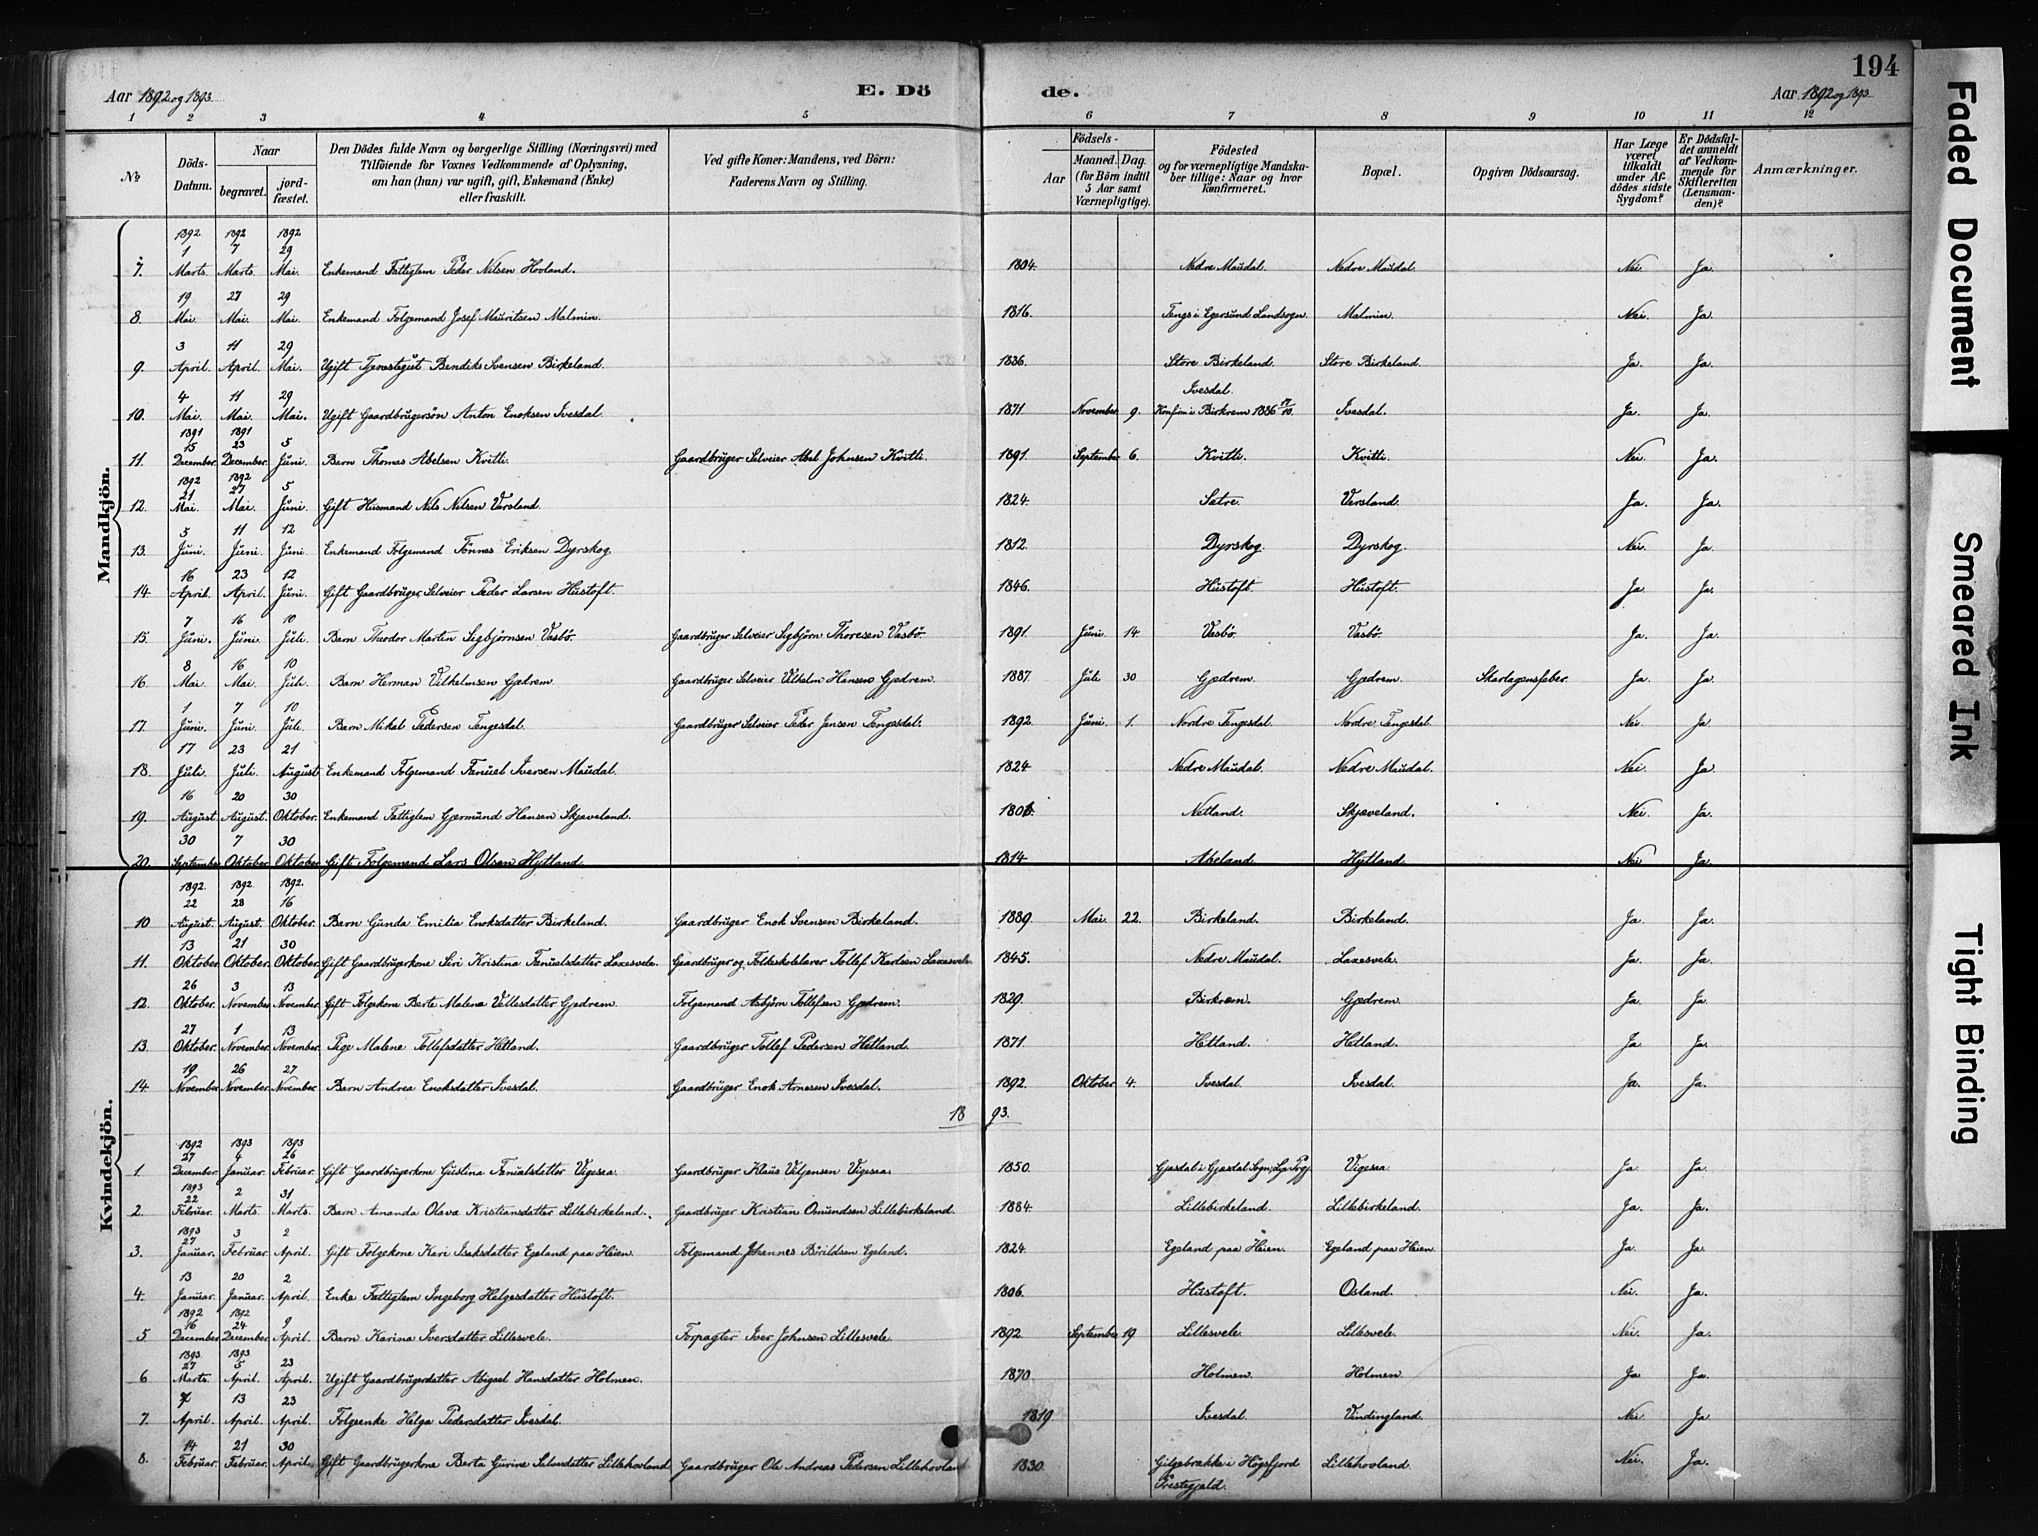 194
Aar 1892 og 1893
E. Dö de.
Aar 1892 og 1893.
1 2 3 4 5 6 7 8 9 10 11 12
No
Döds-Datum.
Naar
begravet.
jord-fæstet.
Den Dödes fulde Navn og borgerlige Stilling (Næringsvei) med
Tilföiende for Voxnes Vedkommende af Oplysning,
om han (hun) var ugift, gift, Enkemand (Enke)
eller fraskilt.
Ved gifte Koner: Mandens, ved Börn:
Faderens Navn og Stilling.
Födsels-
Aar
Maaned. Dag.
(for Börn indtil
5 Aar samt
Værnepligtige).
Födested
og for værnepligtige Mandska-
ber tillige: Naar og hvor
konfirmeret.
Bopæl.
Opgiven Dödsaarsag.
Har Læge
været
tilkaldt
under Af-
dödes sidste
Sygdom?
Er Dödsfal-
det anmeldt
af Vedkom-
mende for
Skifteretten
(Lensman-
den)?
Anmærkninger.
Mandkjön.
1892 1892 1892
1 7 29
7. Marts. Marts. Mai. Enkemand Fattiglem Peder Nilsen Hovland. 1804. Nedre Maudal. Nedre Maudal. Nei. Ja.
19 27 29
8. Mai. Mai. Mai. Enkemand Folgemand Josef Mauritsen Malmin. 1816. Tengs i Egersund Landsogn. Malmin. Nei. Ja.
3 11 29
9. April. April. Mai. Ugift Tjenestegut Bendik Svensen Birkeland. 1836. Store Birkeland. Store Birkeland. Ja. Ja.
4 11 29 Ivesdal.
10. Mai. Mai. Mai. Ugift Gaardbrugersön Anton Enoksen Ivesdal. 1871. November. 9. Konfirm. i Birkrem 1886 17/10. Ivesdal. Ja. Ja.
1891 1891
15 23 5
11. December. December. Juni. Barn Thomas Abelsen Kvitli. Gaardbruger Selveier Abel Johnsen Kvitli. 1891. September 6. Kvitli. Kvitli. Nei. Ja.
1892 1892
21 27 5
12. Mai. Mai. Juni. Gift Husmand Nils Nilsen Versland. 1824. Sætre. Versland. Ja. Ja.
5 11 12
13. Juni. Juni. Juni. Enkemand Folgemand Tönnes Eriksen Dyrskog. 1812. Dyrskog. Dyrskog. Nei. Ja.
16 23 12
14. April. April. Juni. Gift Gaardbruger Selveier Peder Larsen Hustoft. 1846. Hustoft. Hustoft. Ja. Ja.
7 16 10
15. Juni. Juni. Juli. Barn Theodor Martin Sigbjörnsen Vasbö. Gaardbruger Selveier Sigbjörn Thoresen Vasbö. 1891. Juni. 14. Vasbö. Vasbö. Ja. Ja.
8 16 10
16. Mai. Mai. Juli. Barn Herman Vilhelmsen Gjedrem. Gaardbruger Selveier Vilhelm Hansen Gjedrem. 1887. Juli. 30 Gjedrem. Gjedrem. Skarlagensfeber. Ja. Ja.
1 7 10
17. Juni. Juni. Juli. Barn Mikal Pedersen Tengesdal. Gaardbruger Selveier Peder Jensen Tengesdal. 1892. Juni. 1. Nordre Tengesdal. Nordre Tengesdal. Nei. Ja
17 23 21
18. Juli. Juli. August. Enkemand Folgemand Tanuel Iversen Maudal. 1824. Nedre Maudal. Nedre Maudal. Nei. Ja
16 20 30
19. August. August. Oktober. Enkemand Fattiglem Gjermund Hansen Skjæveland. 1806. Netland. Skjæveland. Nei. Ja.
30 7 30
20. September Oktober. Oktober. Gift Folgemand Lars Olsen Hytland. 1814 Abeland. Hytland. Nei Ja.
Kvindekjön.
1892. 1892 1892.
22 28 16
10 August. August. Oktober. Barn Gunda Emilia Enoksdatter Birkeland. Gaardbruger Enok Svensen Birkeland. 1889. Mai. 22. Birkeland. Birkeland. Ja. Ja.
13 21 30
11. Oktober. Oktober. Oktober. Gift Gaardbrugerkone Siri Kristina Tanuelsdatter Laxesvele. Gaardbruger og Folkeskolelærer Tollef Karlsen Laxesvele 1845. Nedre Maudal. Laxesvele. Ja. Ja.
26 3 13
12. Oktober. November November. Gift Folgekone Berte Malena Vellesdatter Gjedrem. Folgemand Asbjörn Tollefsen Gjedrem. 1829. Birkrem. Gjedrem. Ja. Ja
27 1 13
13. Oktober. November. November. Pige Malene Tollefsdatter Hetland. Gaardbruger Tollef Pedersen Hetland. 1871. Hetland. Hetland. Ja Ja.
19 26 27
14. November. November. November. Barn Andrea Enoksdatter Ivesdal. Gaardbruger Enok Arnesen Ivesdal. 1892. Oktober. 4. Ivesdal. Ivesdal. Ja. Ja.
18 93.
1892 1893 1893
27 4 26
1. December. Januar. Februar. Gift Gaardbrugerkone Gustina Tanielsdatter Vigesaa. Gaardbruger Klaus Viljensen Vigesaa. 1850. Gjesdal i Gjesdal Sogn, Lye Prgj. Vigesaa. Ja Ja.
1893
22 2 31
2. Februar. Marts. Marts. Barn Amanda Olava Kristiansdatter Lillebirkeland. Gaardbruger Kristian Omundsen Lillebirkeland. 1884. Lillebirkeland. Lillebirkeland. Ja. Ja.
1893
27 3 2
3. Januar. Februar. April. Gift Folgekone Kari Isaksdatter Egeland paa Heien. Folgemand Johannes Börildsen Egeland. 1824. Egeland paa Heien. Egeland paa Heien. Ja. Ja.
13 20 2
4. Januar. Januar. April. Enke Fattiglem Ingeborg Helgesdatter Hustoft. 1806. Hustoft. Osland. Nei. Ja.
1892 1892
16 24 9
5 December. December. April. Barn Karina Iversdatter Lillesvele. Forpagter Iver Johnsen Lillesvele. 1892. September. 19 Lillesvele. Lillesvele. Nei. Ja.
1893. 1893
27 5 23
6 Marts. April. April. Ugift Gaardbrugerdatter Abigael Hansdatter Holmen. 1870 Holmen. Holmen. Ja. Ja.
7 13 23
7. April. April. April. Folgeenke Helga Pedersdatter Ivesdal. 1819 Ivesdal. Vindingland. Nei Ja
14 21 30
8. Februar. Februar. April. Gift Gaardbrugerkone Berta Gurine Salvesdatter Lillehovland Gaardbruger Ole Andreas Pedersen Lillehovland 1830. Gilgebrække i Högsfjord Lillehovland. Nei. Ja.
Prestegjæld.
Faded Document
Smeared Ink
Tight Binding